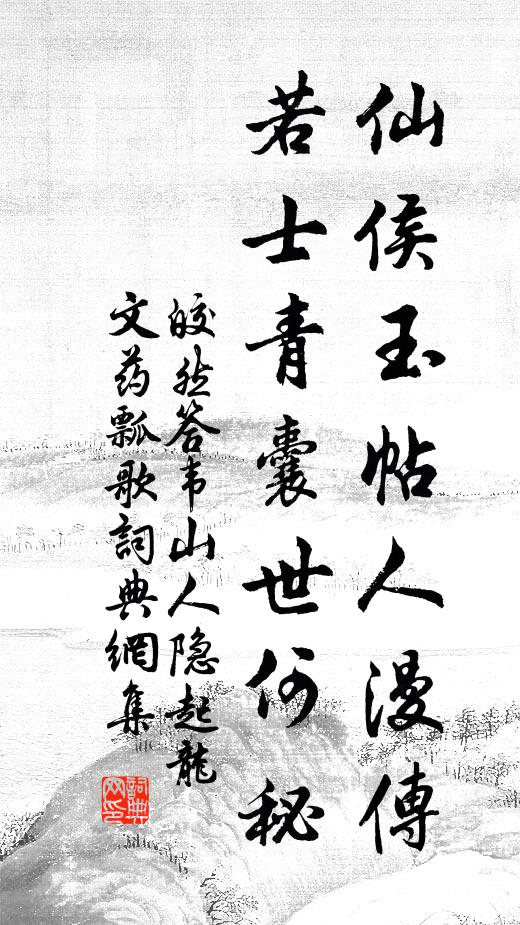 仙侯玉帖人漫傳
若士青囊世何秘
皎然答韦山人隐起龍
文药瓢歌詞典網集
詞典网印